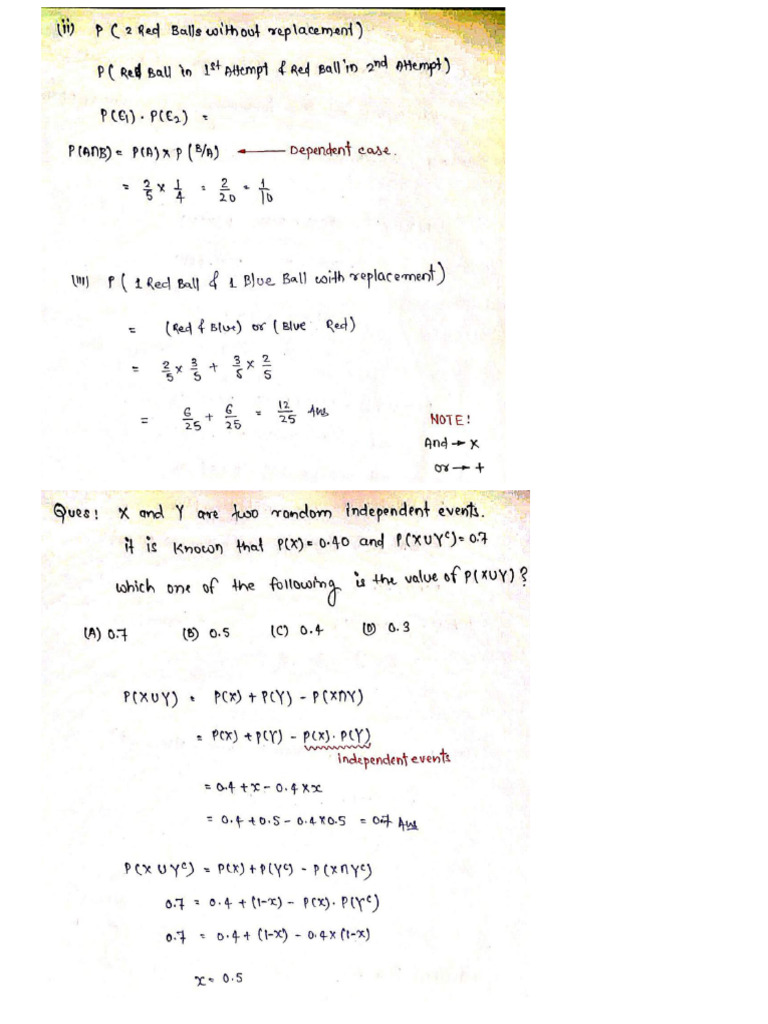 (ii) P ( 2 Red Balls without replacement)
P( Red Ball in 1st Attempt & Red Ball in 2nd Attempt)
P(E₁) . P(E₂) =
P(A∩B) = P(A) x P (B/A) ← Dependent case.
= 2/5 x 1/4 = 2/20 = 1/10
(iii) P ( 1 Red Ball & 1 Blue Ball with replacement)
= (Red & Blue) or ( Blue Red)
= 2/5 x 3/5 + 3/5 x 2/5
= 6/25 + 6/25 = 12/25 Ans
NOTE!
And → x
or → +
Ques: X and Y are two random independent events.
it is known that P(X) = 0.40 and P(X∪Yᶜ) = 0.7
which one of the following is the value of P(X∪Y) ?
(A) 0.7 (B) 0.5 (C) 0.4 (D) 0.3
P(X∪Y) = P(X) + P(Y) - P(X∩Y)
= P(X) + P(Y) - P(X). P(Y)
independent events
= 0.4 + x - 0.4 x x
= 0.4 + 0.5 - 0.4 x 0.5 = 0.7 Ans
P(X ∪ Yᶜ) = P(X) + P(Yᶜ) - P(X∩Yᶜ)
0.7 = 0.4 + (1-x) - P(X). P(Yᶜ)
0.7 = 0.4 + (1-x) - 0.4 x (1-x)
x = 0.5